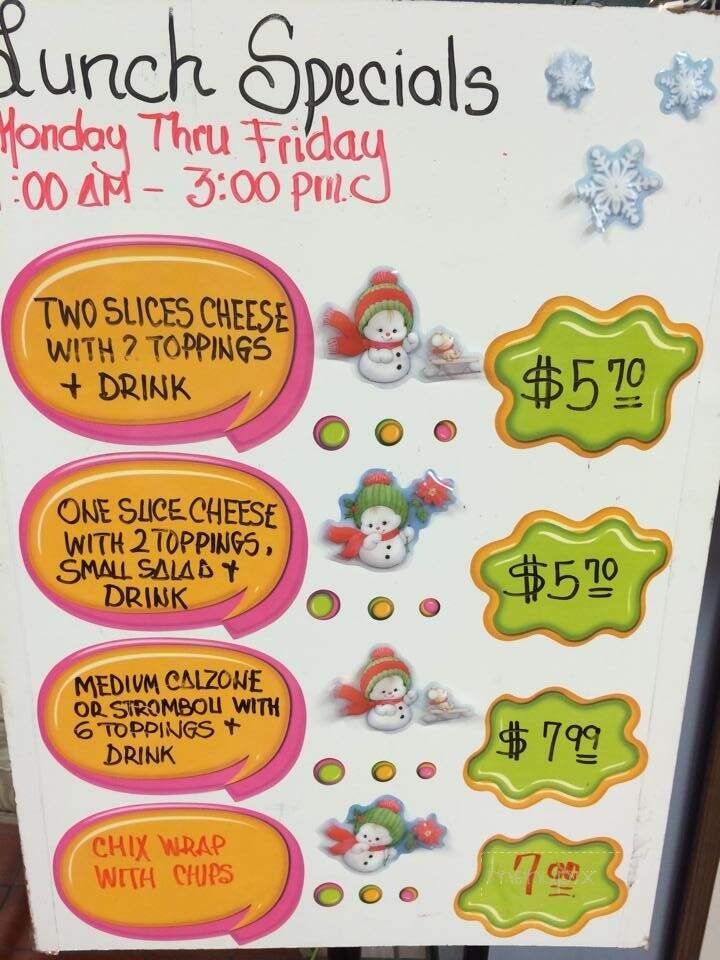 Lunch Specials
Monday Thru Friday
:00 AM - 3:00 pm.
TWO SLICES CHEESE
WITH 2 TOPPINGS
+ DRINK
$5 70
ONE SLICE CHEESE
WITH 2 TOPPINGS,
SMALL SALAD +
DRINK
$5 70
MEDIUM CALZONE
OR STROMBOLI WITH
6 TOPPINGS +
DRINK
$ 7 99
CHIX WRAP
WITH CHIPS
7 00